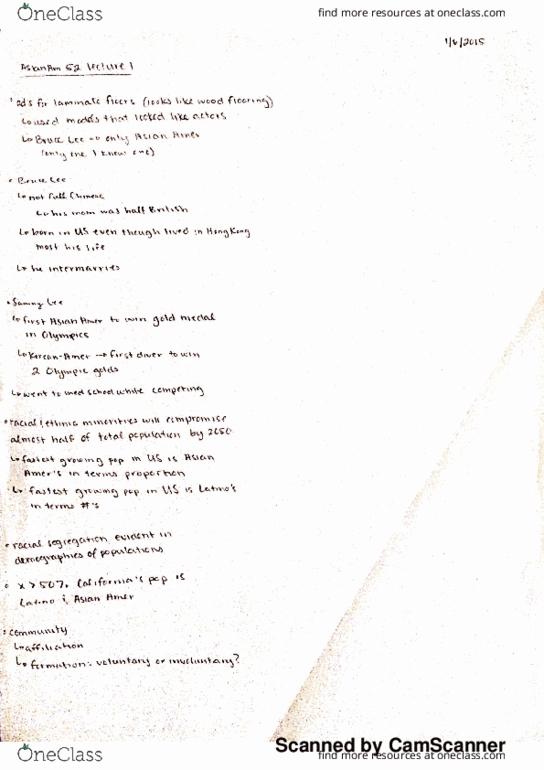 OneClass
find more resources at oneclass.com
1/6/2015
AsianAm 52 lecture 1
ads for laminate floors (looks like wood flooring)
↳ used models that looked like actors
↳ Bruce Lee → only Asian Amer
(only one I knew one)
• Bruce Lee
↳ not full Chinese
↳ his mom was half British
↳ born in US even though lived in Hong Kong
most his life
↳ he intermarries
• Sammy Lee
↳ first Asian Amer to win gold medal
in Olympics
↳ Korean-Amer → first diver to win
2 Olympic golds
↳ went to med school while competing
• racial/ethnic minorities will compromise
almost half of total population by 2050
↳ fastest growing pop in US is Asian
Amer's in terms proportion
↳ fastest growing pop in US is Latino's
in terms #'s
• racial segregation evident in
demographics of populations
• x > 50%. California's pop is
Latino & Asian Amer
• community
↳ affiliation
↳ formation: voluntary or involuntary?
Scanned by CamScanner
OneClass
find more resources at oneclass.com